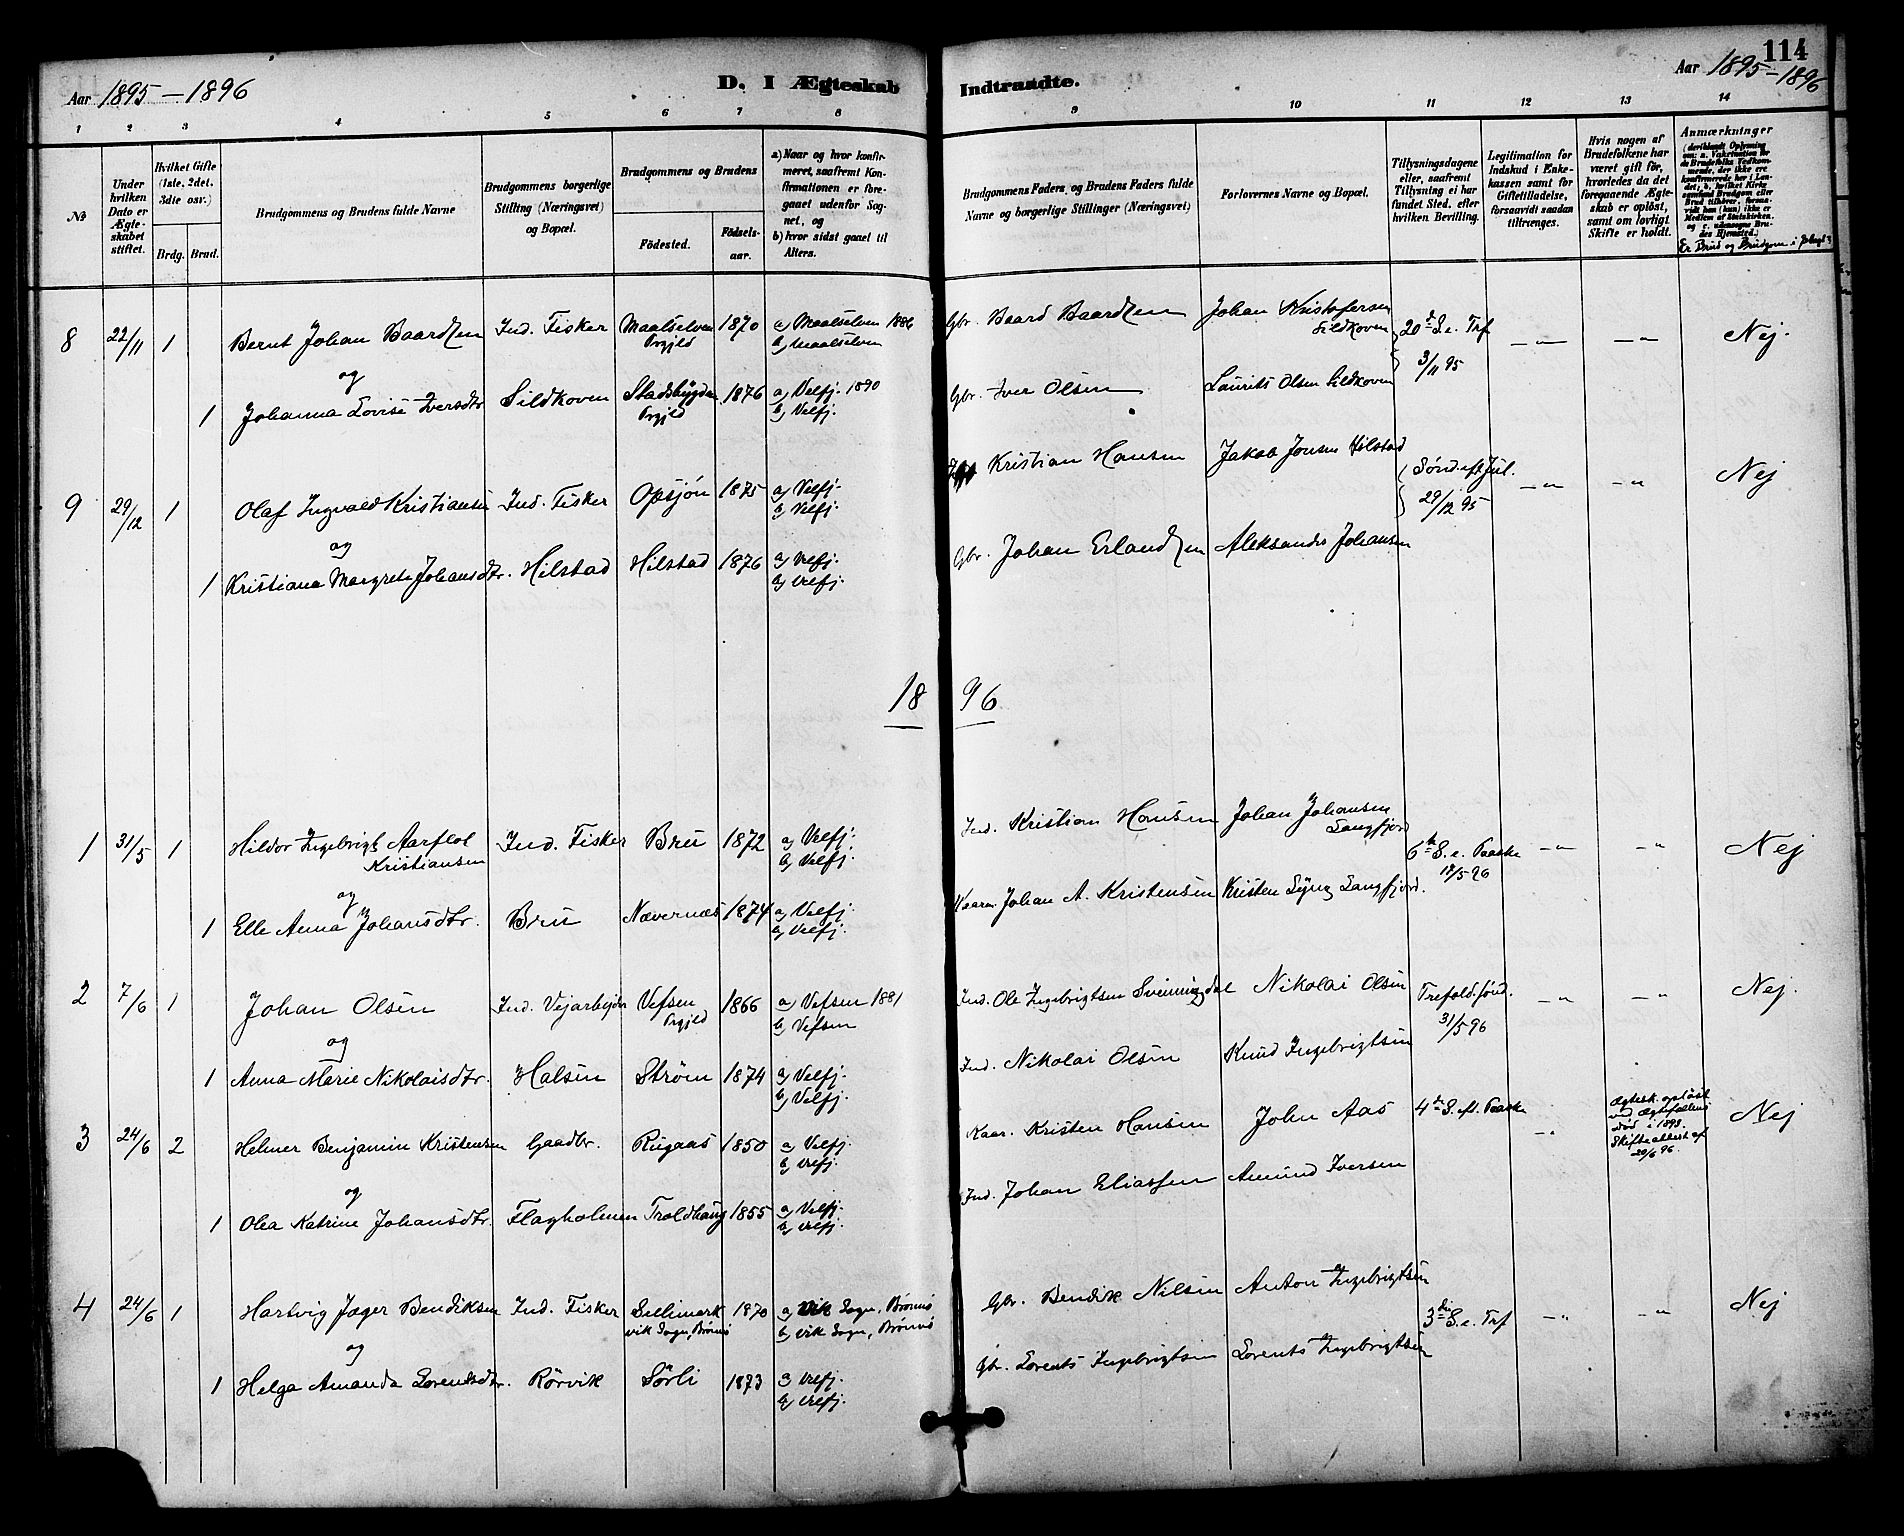 Aar 1895–1896
D. I Ægteskab
Indtraadte.
Aar 1895–1896
114
1 2 3 4 5 6 7 8 9 10 11 12 13 14
No
Under hvilken Dato er Ægteskabet stiftet.
Hvilket Gifte (1ste, 2det, 3die osv.)
Brdg. Brud.
Brudgommens og Brudens fulde Navne
Brudgommens borgerlige Stilling (Næringsvei) og Bopæl.
Brudgommens og Brudens
Födested.
Födsels-aar.
a) Naar og hvor konfirmeret, saafremt Konfirmationen er foregaaet udenfor Sognet, og
b) hvor sidst gaaet til Alters.
Brudgommens Faders og Brudens Faders fulde Navne og borgerlige Stillinger (Næringsvei)
Forlovernes Navne og Bopæl.
Tillysningsdagene eller, saafremt Tillysning ei har fundet Sted, efter hvilken Bevilling.
Legitimation for Indskud i Enkekassen samt for Giftetilladelse, forsaavidt saadan tiltrænges.
Hvis nogen af Brudefolkene har været gift før, hvorledes da det foregaaende Ægteskab er oplöst, samt om lovligt Skifte er holdt.
Anmærkninger
Er Brud og Brudgom i
8 22/11 1 Bernt Johan Baardzen Ind. Fisker Maalselven Prgjld 1870 a) Maalselven 1886 b) Maalselven Gbr. Baard Baardzen Johan Kristofersen Sildkoven 20de S. e. Trf 3/11 95 –„– –„– Nej.
og
1 Johanna Lovise Iversdtr Sildkoven Stadsbygden Prgjld 1876 a) Velfj. 1890 b) Velfj. Gbr. Iver Olsen Laurits Olsen Sildkoven
9 29/12 1 Olaf Ingvald Kristiansen Ind. Fisker Opsjön 1875 a) Velfj. b) Velfj. Kristian Hansen Jakob Jonsen Hilstad Sönd. eft Jul. 29/12 95 –„– –„– Nej
og
1 Kristiana Margrete Johansdtr. Hilstad Hilstad 1876 a) Velfj. b) Velfj. Gbr. Johan Erlandzen Aleksander Johansen
1896
1 31/5 1 Hildor Ingebrigt Aarflot Kristiansen Ind. Fisker Bru 1872 a) Velfj. b) Velfj. Ind. Kristian Hansen Johan Johansen Langfjord 6te S. e. Paaske 17/5 96 –„– –„– Nej
og
1 Elle Anna Johansdtr. Bru Nævernæs 1874 a) Velfj. b) Velfj. Kaarm. Johan A. Kristensen Kristen Lyng Langfjord.
2 7/6 1 Johan Olsen Ind. Vejarbejder Vefsen Prgjld 1866 a) Vefsen 1881 b) Vefsen Ind. Ole Ingebrigtsen Svenningdal Nikolai Olsen Trefold. sönd. 31/5 96 –„– –„– Nej.
og
1 Anna Marie Nikolaisdtr. Halsen Ström 1874 a) Velfj. b) Velfj. Ind. Nikolai Olsen Knud Ingebrigtsen
3 24/6 2 Helmer Benjamin Kristensen Gaardbr. Rugaas 1850 a) Velfj. b) Velfj. Kaar. Kristen Hansen John Aas 4de S. eft. Paaske –„– Ægtesk. oplöst ved Ægtefællens död i 1893. Skifteattest af 20/6 96. Nej
og
1 Olea Katrine Johansdtr. Flagholmen Troldhaug 1855 a) Velfj. b) Velfj. Ind. Johan Eliassen Amund Iversen
4 24/6 1 Hartvig Jæger Bendiksen Ind. Fisker Vik Sogn, Brönnö 1870 a) Vik Sogn, Brönnö b) Vik Sogn, Brönnö Gbr. Bendik Nilsen Anton Ingebrigtsen 3die S. e. Trf –„– –„– Nej
og
1 Helga Amanda Lorentsdtr. Rörvik Sörli 1873 a) Velfj. b) Velfj. Gbr. Lorents Ingebrigtsen Lorents Ingebrigtsen